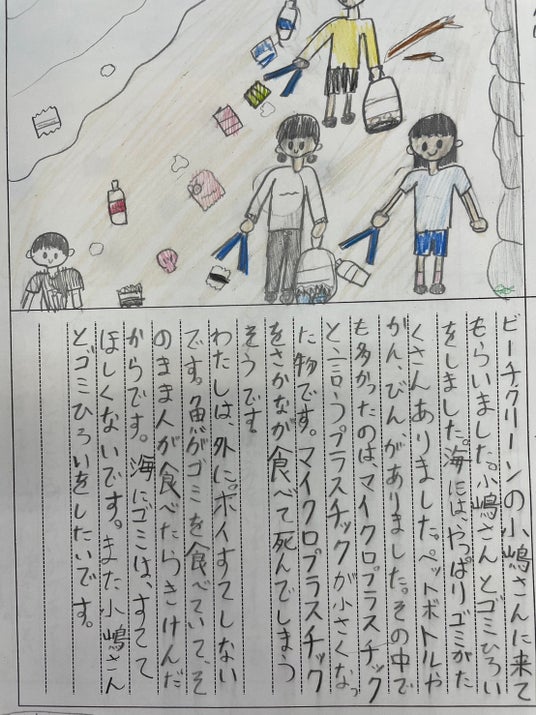 ビーチクリーンの小嶋さんに来て
もらいました。小嶋さんとゴミひろい
をしました。海には、やっぱりゴミがた
くさんありました。ペットボトルや
かん、びんがありました。その中で
も多かったのは、マイクロプラスチック
と言うプラスチックが小さくなっ
た物です。マイクロプラスチック
をさかなが食べて死んでしまう
そうです。
わたしは、外に。ポイすてしない
です。魚がゴミを食べていて、そ
のまま人が食べたらきけんだ
からです。海にゴミは、すてて
ほしくないです。また小嶋さん
とゴミひろいをしたいです。